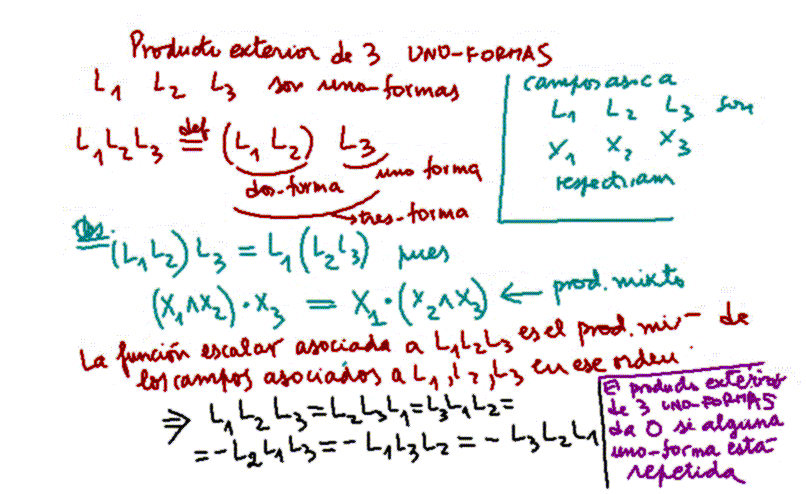 Producto exterior de 3 UNO-FORMAS
L₁ L₂ L₃ son uno-formas
L₁L₂L₃ =def (L₁ L₂) L₃
uno forma
dos-forma
tres-forma
campos asic a
L₁ L₂ L₃ son
X₁ X₂ X₃
respectivam
Obs.
(L₁L₂)L₃ = L₁(L₂L₃) pues
(X₁∧X₂)·X₃ = X₁·(X₂∧X₃) ← prod. mixto
La función escalar asociada a L₁L₂L₃ es el prod. mix de
los campos asociados a L₁, L₂, L₃ en ese orden.
⇒ L₁L₂L₃ = L₂L₃L₁ = L₃L₁L₂ =
= -L₂L₁L₃ = - L₁L₃L₂ = - L₃L₂L₁
El producto exterior
de 3 UNO-FORMAS
da 0 si alguna
uno-forma está
repetida